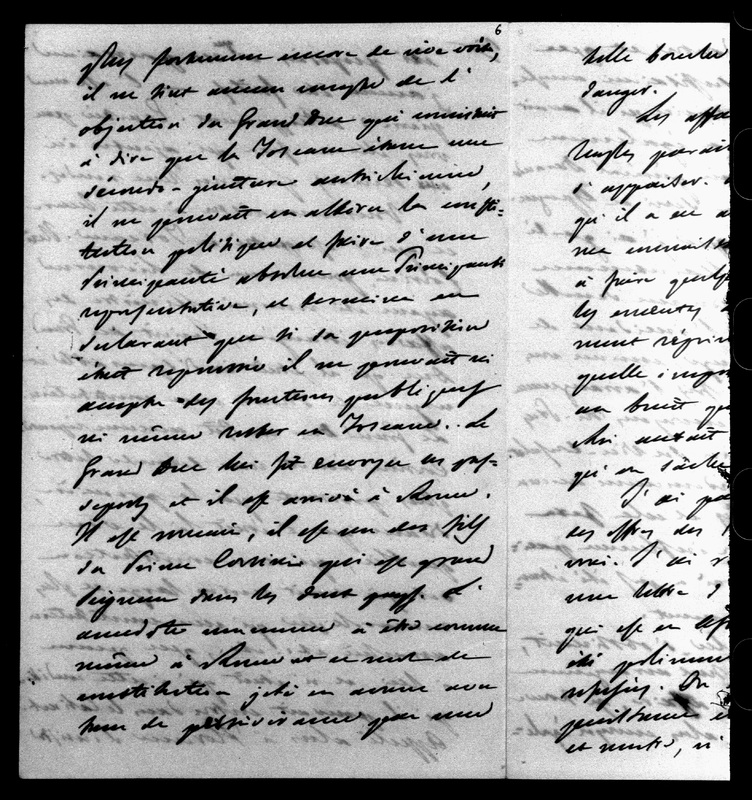 6
plus fortement encore de vive voix,
il ne tint aucun compte de l'
objection du Grand Duc qui consistait
à dire que la Toscane étant une
seconde-géniture autrichienne,
il ne pouvait en altérer la consti=
tution politique et faire d'une
Principauté absolue une Principauté
représentative, et termina en
déclarant que si sa proposition
était repoussée il ne pouvait ni
accepter des fonctions publiques
ni même rester en Toscane. Le
Grand Duc lui fit envoyer ses pas=
seports et il est arrivé à Rome.
Il est romain, il est un des fils
du Prince Corsini qui est grand
Seigneur dans les deux pays. L'
anecdote commence à être connue
même à Rome et ce mot de
constitution jeté en avant avec
tant de persévérance par une
telle bouche
danger.
Les affa
s'appaiser.
qu'il a eu
à faire quelq
les
ment
quelle
au bruit qu
qui en
J'ai
des offres des
vrai. J'ai
une lettre
qui est en
été
refusés. On
et